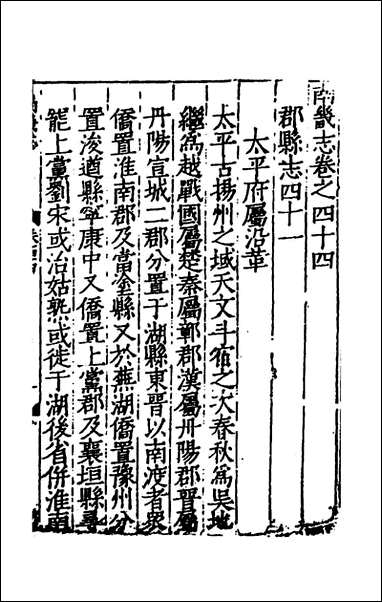 南畿志卷之四十四
郡縣志四十一
太平府屬沿革
太平古揚州之域天文斗宿之次春秋為吳地
繼為越戰國屬楚秦屬鄣郡漢屬丹陽郡晉屬
丹陽宣城二郡分置于湖縣東晉以南渡者衆
僑置淮南郡及當塗縣又於蕪湖僑置豫州分
置浚遒縣寧康中又僑置上黨郡及襄垣縣尋
罷上黨劉宋或治姑熟或徙于湖後省併淮南